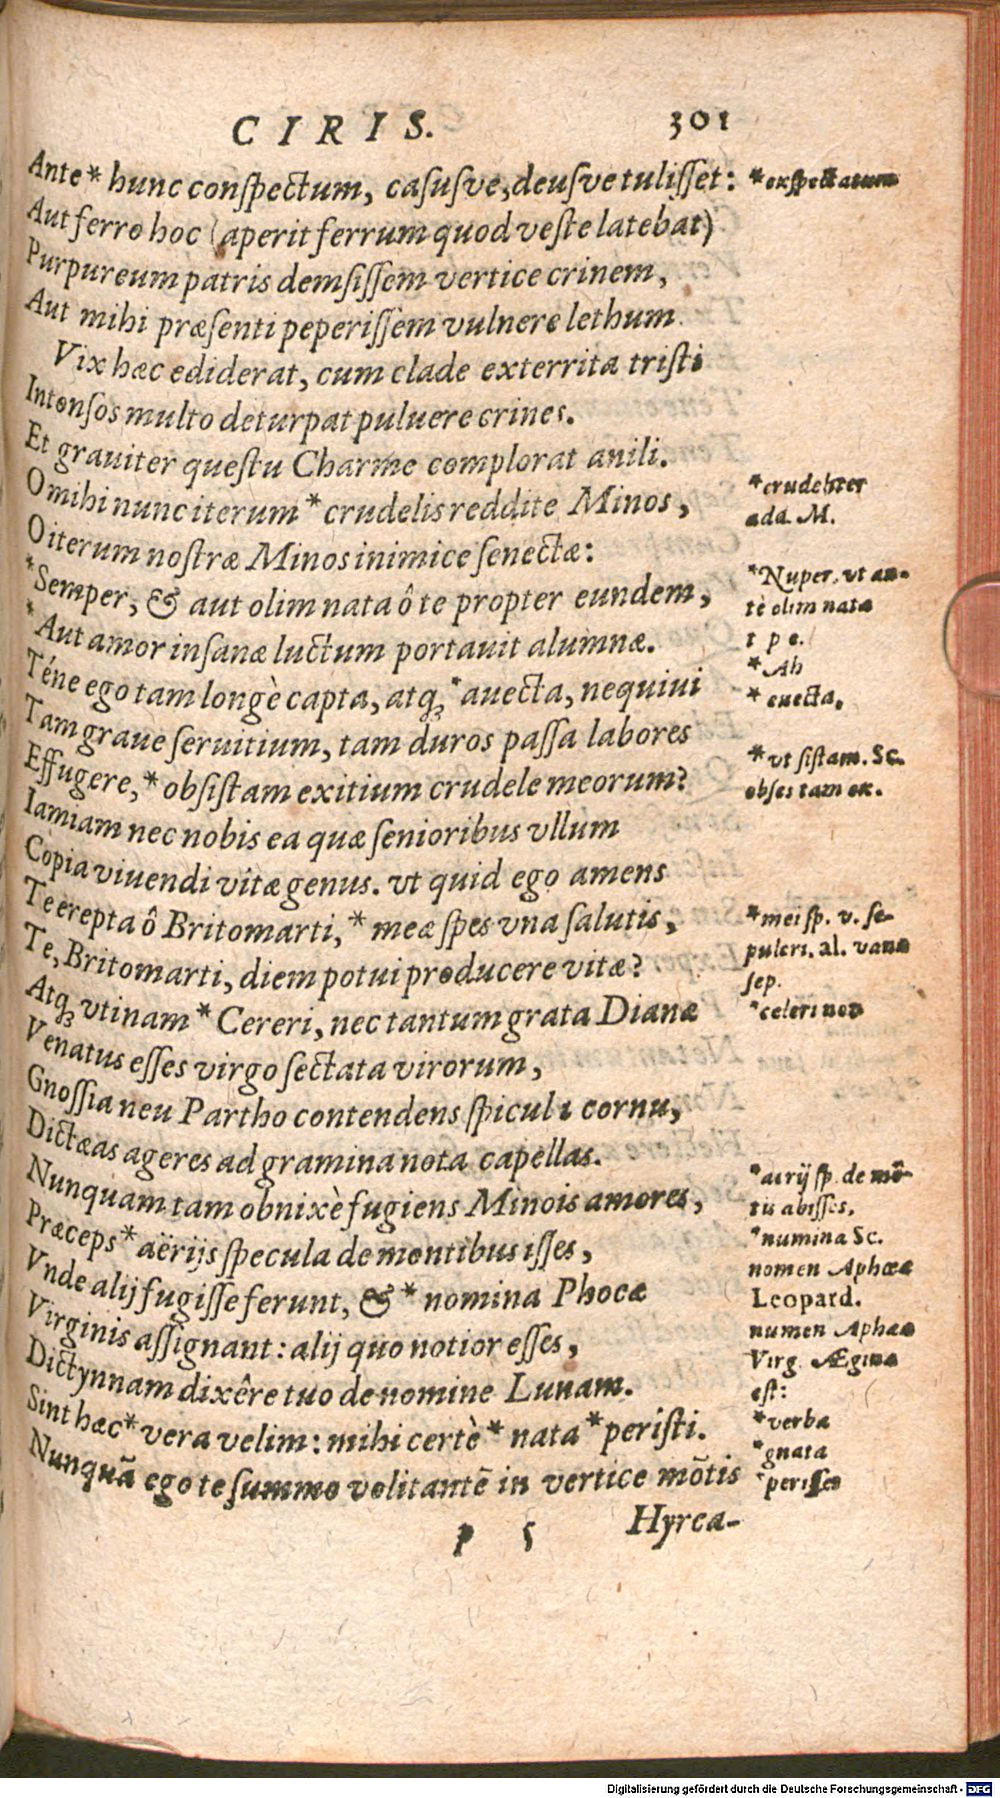 CIRIS. 301
Ante* hunc conſpectum, caſuſve, deuſve tuliſſet:
Aut ferro hoc (aperit ferrum quod veſte latebat)
Purpureum patris demſiſſem vertice crinem,
Aut mihi præſenti peperiſſem vulnere lethum.
Vix hæc ediderat, cum clade exterrita triſti
Intonſos multo deturpat puluere crines.
Et grauiter queſtu Charme complorat anili.
O mihi nunc iterum * crudelis reddite Minos,
O iterum noſtræ Minos inimice ſenectæ:
*Semper, & aut olim nata ô te propter eundem,
* Aut amor inſanæ luctum portauit alumnæ.
Téne ego tam longè capta, atq;* auecta, nequiui
Tam graue ſeruitium, tam duros paſſa labores
Effugere, * obſiſtam exitium crudele meorum?
Iamiam nec nobis ea quæ ſenioribus vllum
Copia viuendi vitæ genus. vt quid ego amens
Te erepta ô Britomarti, * meæ ſpes vna ſalutis,
Te, Britomarti, diem potui producere vitæ?
Atq; vtinam * Cereri, nec tantum grata Dianæ
Venatus eſſes virgo ſectata virorum,
Gnoſſia neu Partho contendens ſpicula cornu,
Dictæas ageres ad gramina nota capellas.
Nunquam tam obnixè fugiens Minois amores,
Præceps * aërijs ſpecula de montibus iſſes,
Vnde alij fugiſſe ferunt, & * nomina Phocæ
Virginis aſſignant: alij quo notior eſſes,
Dictynnam dixêre tuo de nomine Lunam.
Sint hæc * vera velim: mihi certè * nata * periſti.
Nunquã ego te ſummo volitantē in vertice mōtis
p 5 Hyrca-
* exſpectatum
* crudeliter
ada. M.
* Nuper. vt an-
tè olim nata
t p e.
* Ah
* euecta.
* vt ſiſtam. Sc.
* mei ſp. v. ſe-
pulcri. al. vana
ſep.
* celeri non
* aerij ſp. de mō-
tu abiſſes.
* numina Sc.
nomen Aphææ
Leopard.
numen Aphææ
Virg. Ægina
eſt:
* verba
* gnata
* periſſes
Digitalisierung gefördert durch die Deutsche Forschungsgemeinschaft - DFG